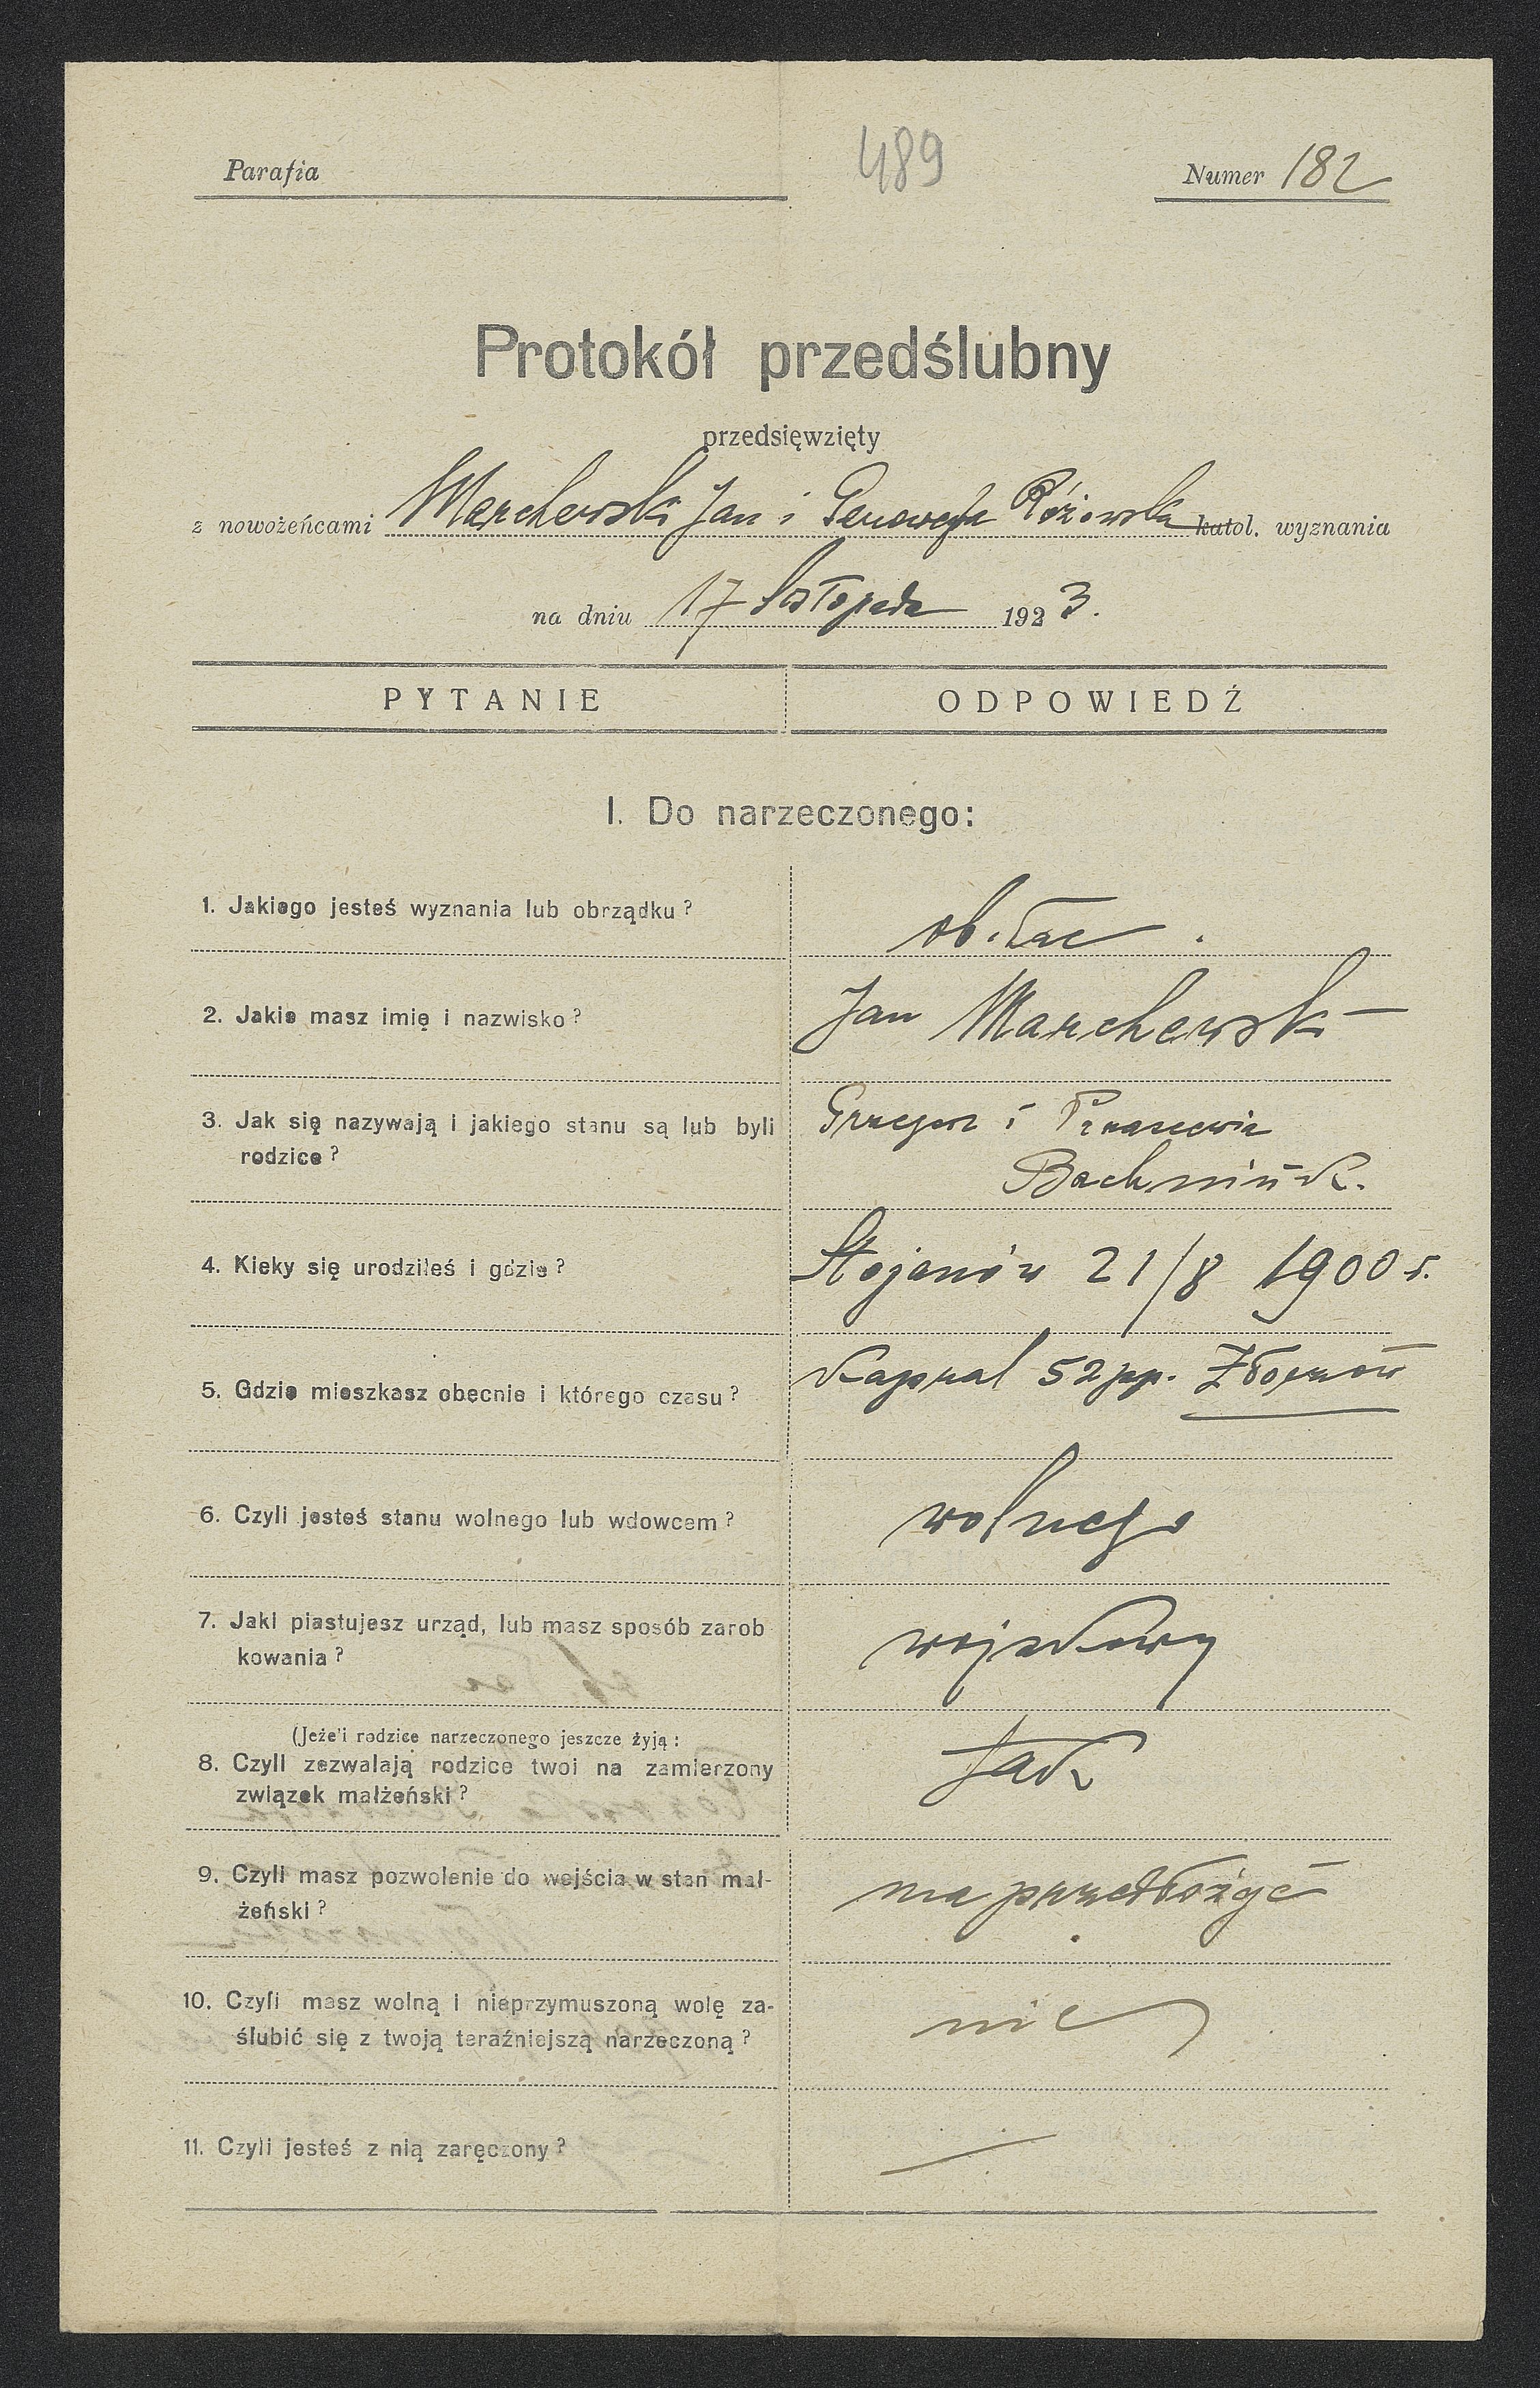 Parafia
489
Numer 182
Protokół przedślubny
przedsięwzięty
z nowożeńcami Marchewski Jan i Genowefa Różowska katol. wyznania
na dniu 17 listopada 1923.
PYTANIE
ODPOWIEDŹ
I. Do narzeczonego:
1. Jakiego jesteś wyznania lub obrządku?
ob. łac.
2. Jakie masz imię i nazwisko?
Jan Marchewski
3. Jak się nazywają i jakiego stanu są lub byli
rodzice?
Grzegorz i
4. Kieky się urodziłeś i gdzie?
Stojanów 21/8 1900 r.
5. Gdzie mieszkasz obecnie i którego czasu?
Kapral 52 pp. Złoczów
6. Czyli jesteś stanu wolnego lub wdowcem?
wolnego
7. Jaki piastujesz urząd, lub masz sposób zarob
kowania?
wojskowy
(Jeże'i rodzice narzeczonego jeszcze żyją:
8. Czyli zezwalają rodzice twoi na zamierzony
związek małżeński?
tak
9. Czyli masz pozwolenie do wejścia w stan mał-
żeński?
ma przedłożyć
10. Czyli masz wolną i nieprzymuszoną wolę za-
ślubić się z twoją teraźniejszą narzeczoną?
11. Czyli jesteś z nią zaręczony?